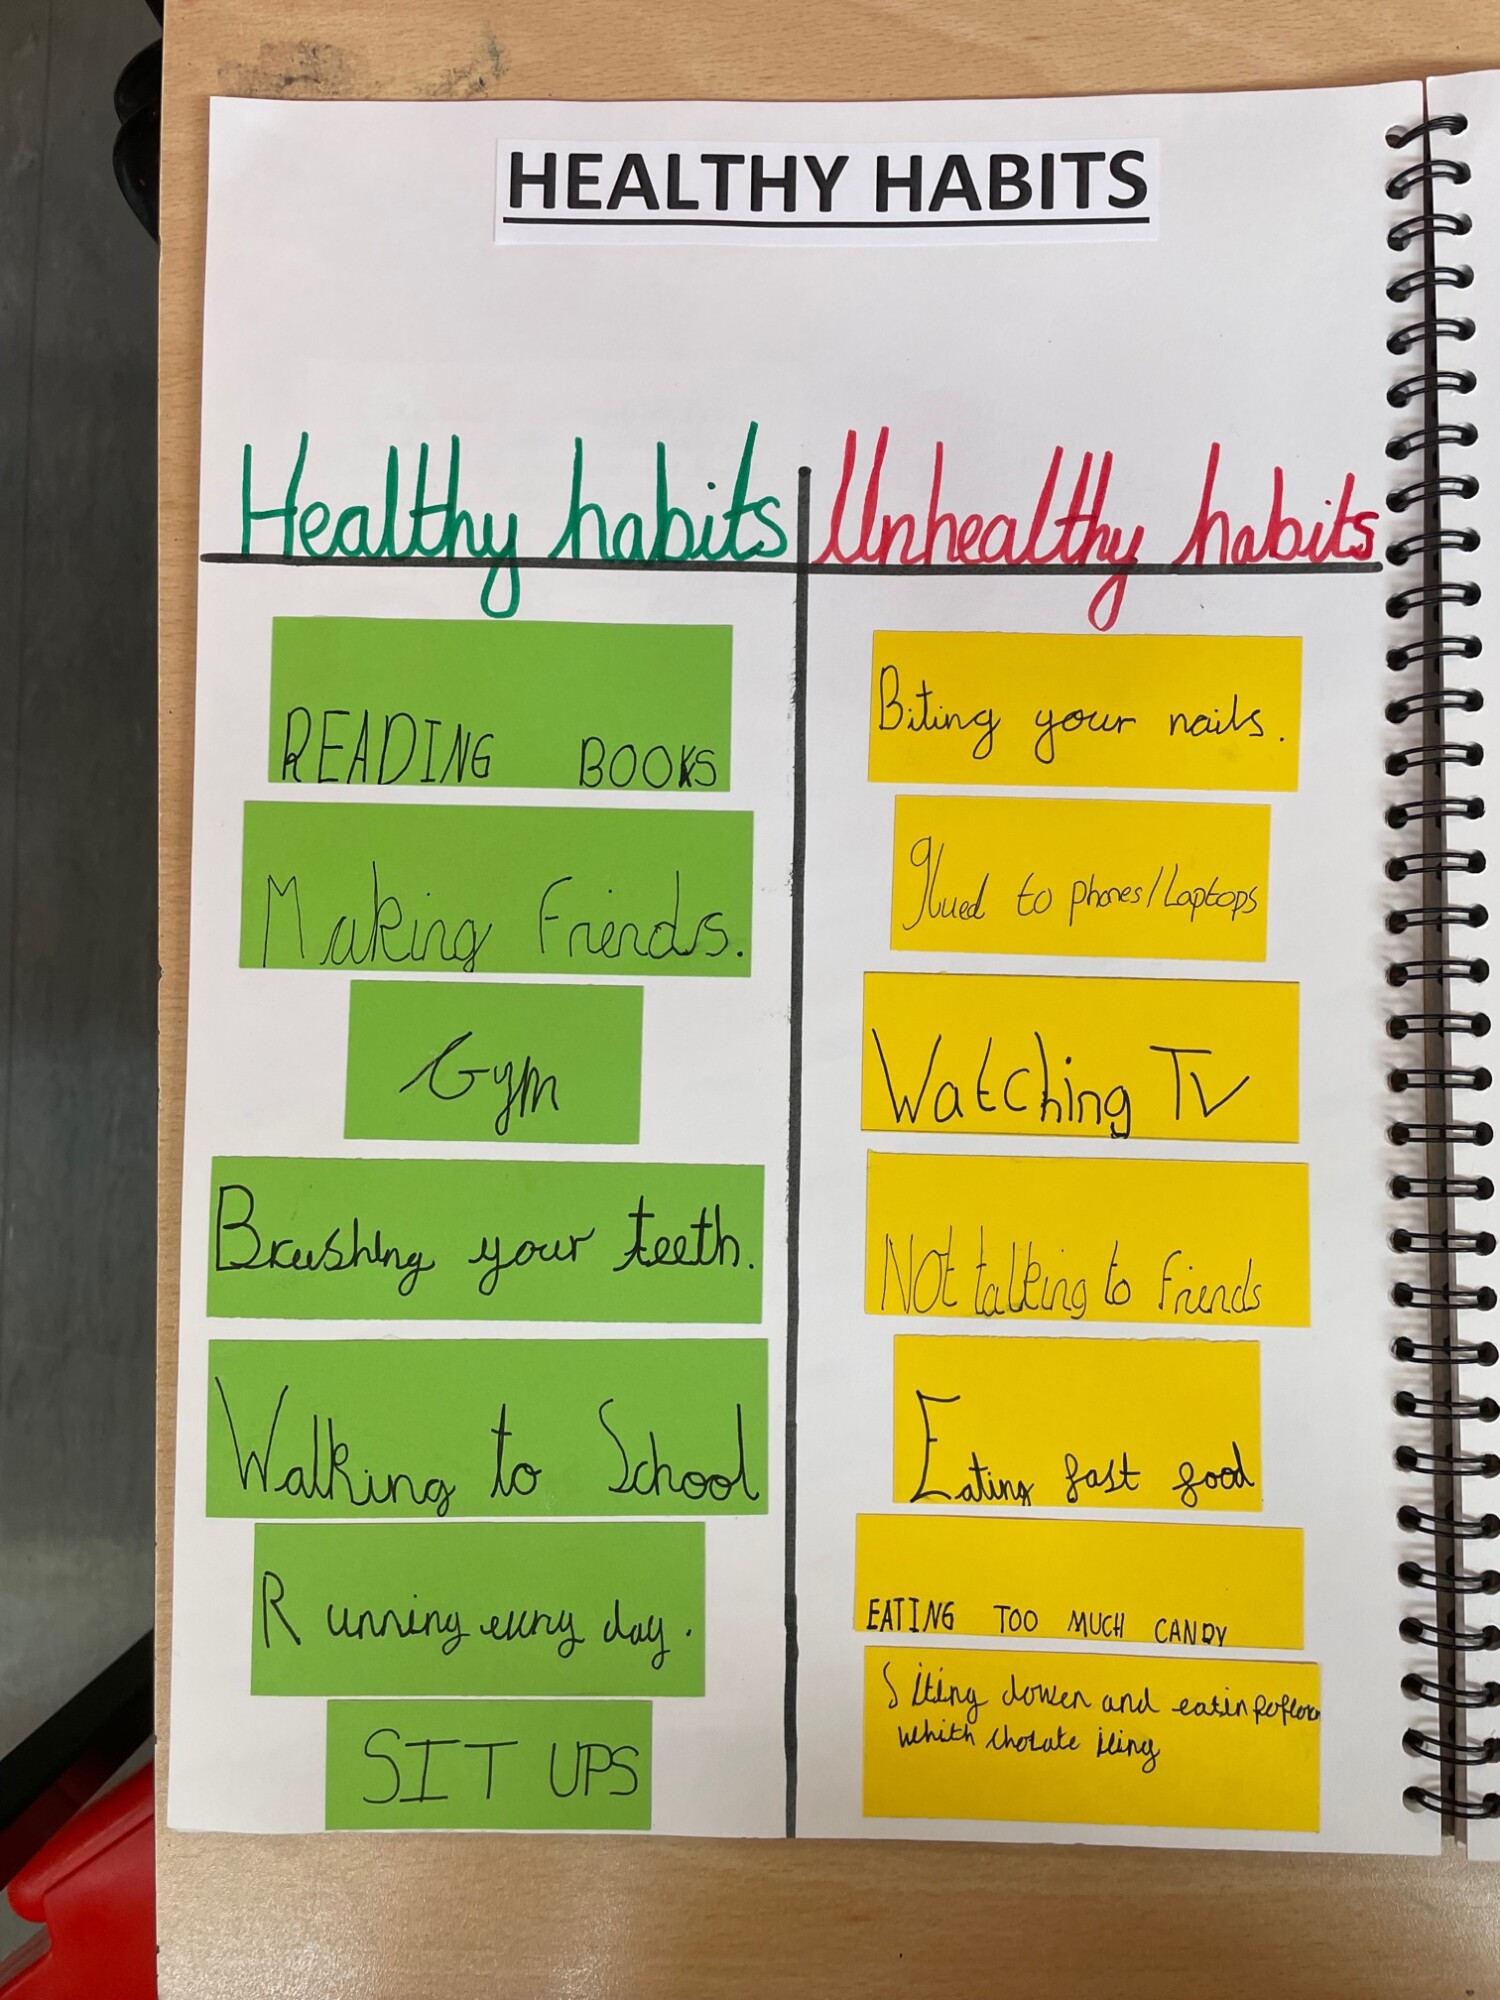 HEALTHY HABITS
Healthy habits
READING BOOKS
Making Friends.
Gym
Brushing your teeth.
Walking to School
Running every day.
SIT UPS
Unhealthy habits
Biting your nails.
glued to phones/Laptops
Watching TV
NOt talking to friends
Eating fast food
EATING TOO MUCH CANDY
Siting dowen and eatin
whith